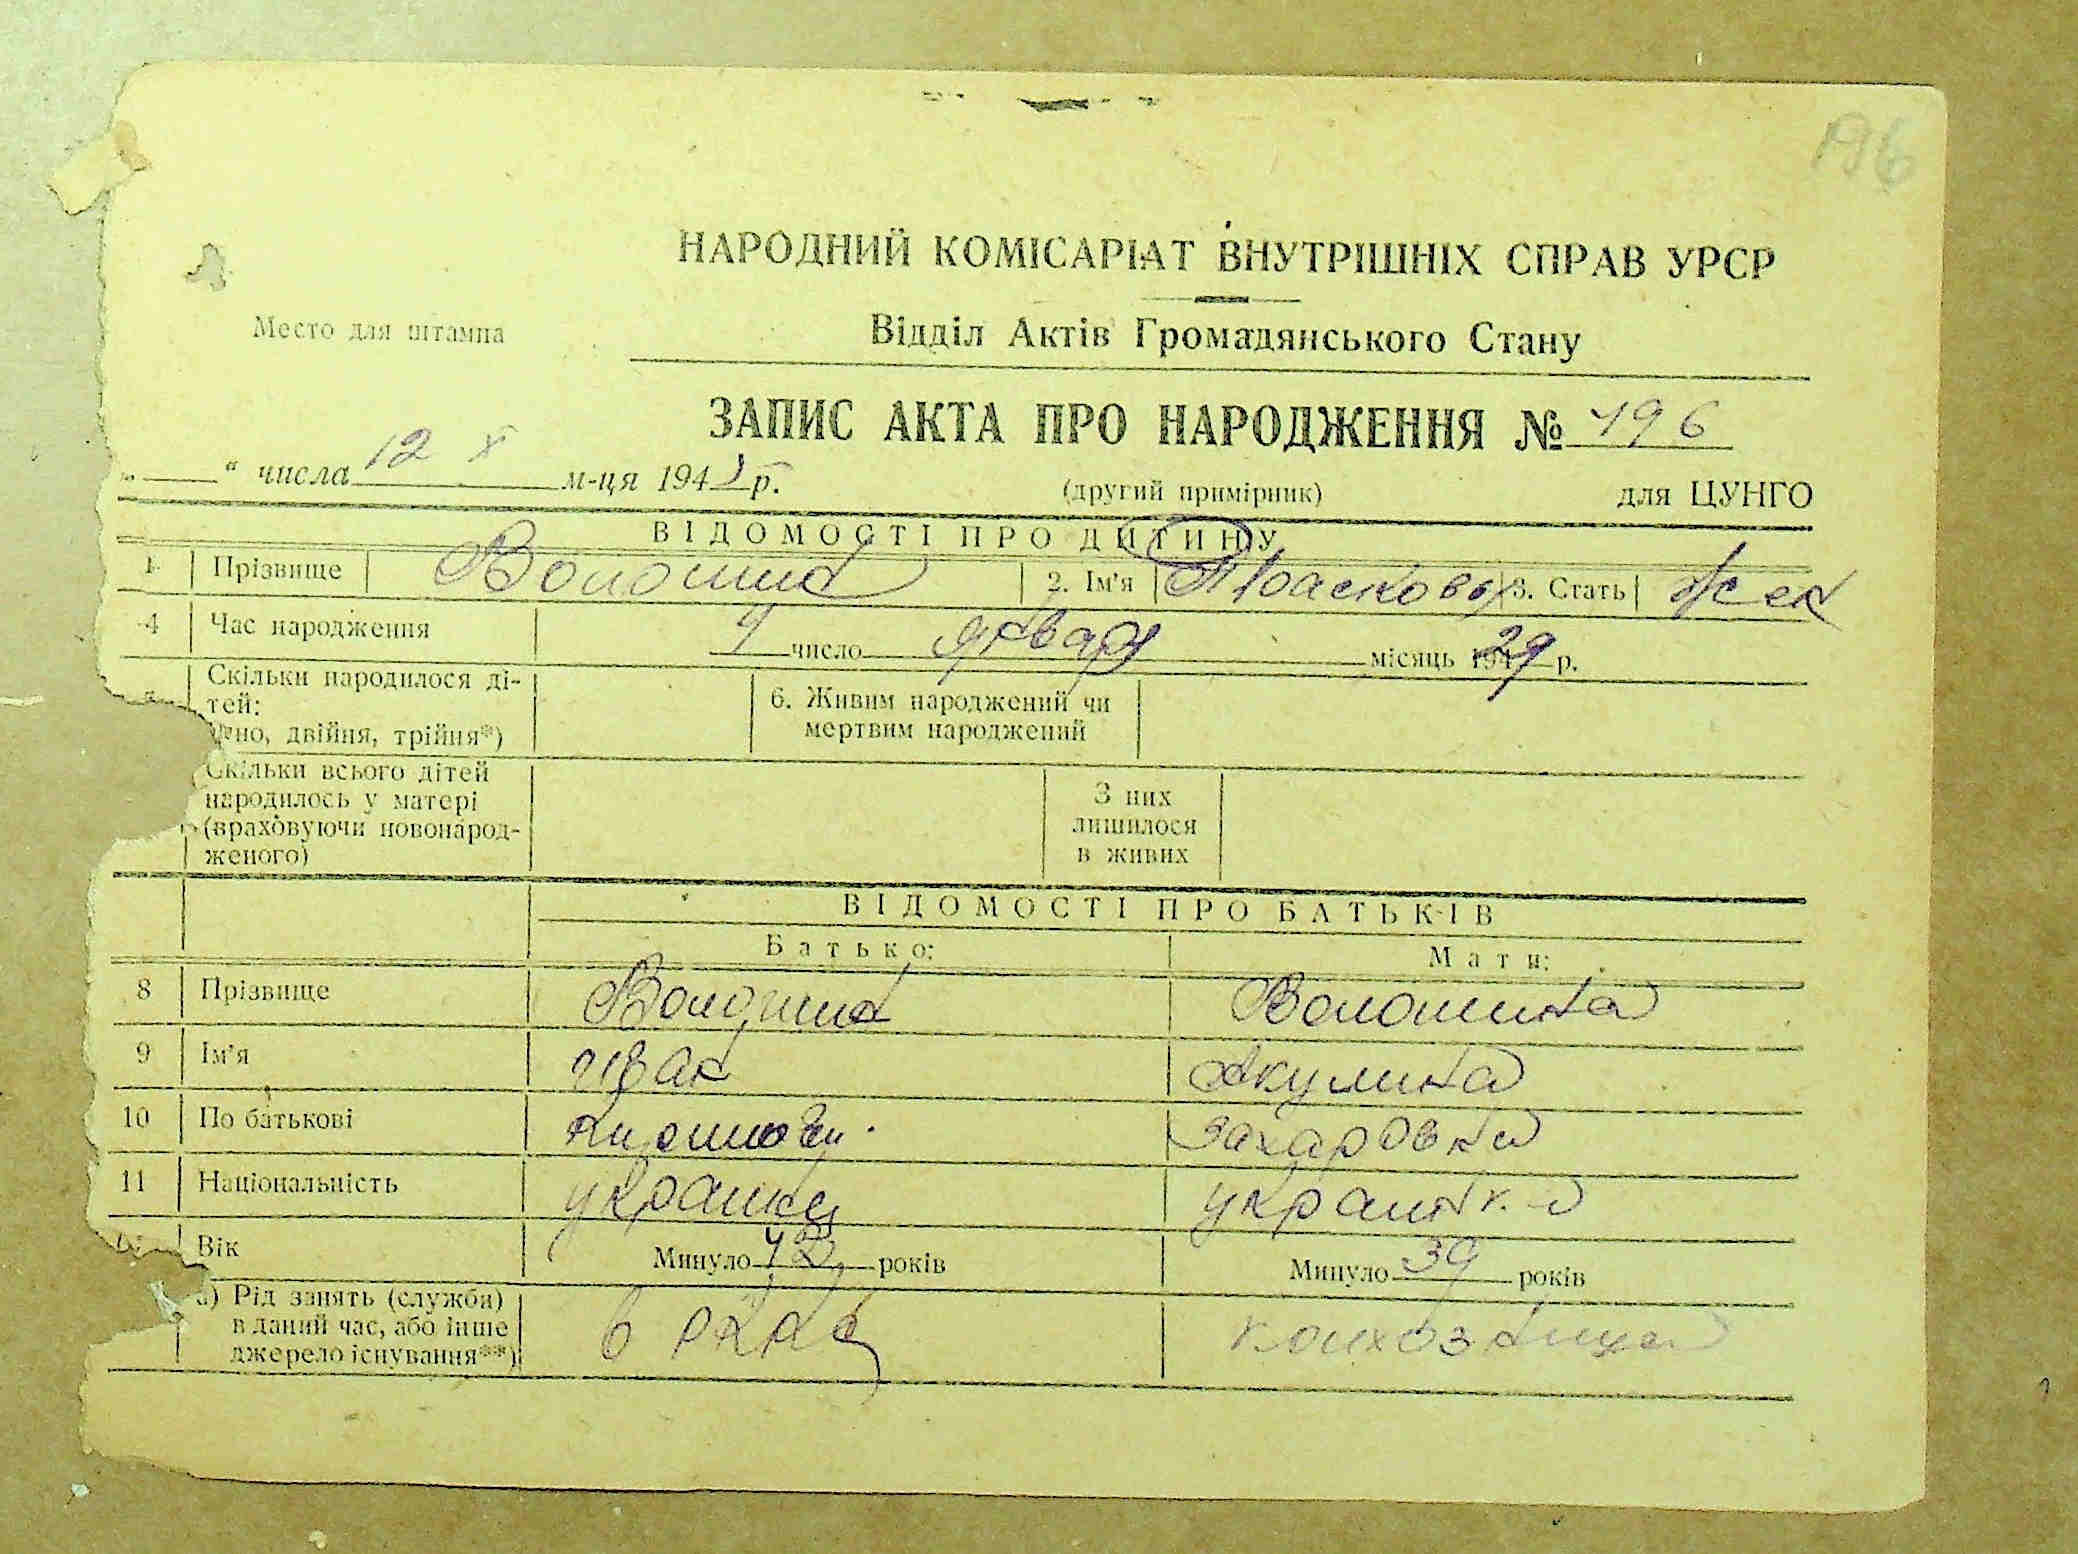 196
НАРОДНИЙ КОМІСАРІАТ ВНУТРІШНІХ СПРАВ УРСР
Место для штампа
Відділ Актів Громадянського Стану
ЗАПИС АКТА ПРО НАРОДЖЕННЯ № 196
„ “ числа 12 X м-ця 194 р.
(другий примірник) для ЦУНГО
ВІДОМОСТІ ПРО ДИТИНУ
1 Прізвище Волошин 2. Ім’я Прасковья 3. Стать жен
4 Час народження число январ місяць 29 р.
Скільки народилося ді-
тей:
но, двійня, трійня*)
6. Живим народжений чи
мертвим народжений
Скільки всього дітей
народилось у матері
(враховуючи новонарод-
женого)
З них
лишилося
в живих
ВІДОМОСТІ ПРО БАТЬКІВ
Батько: Мати:
8 Прізвище Волошин Волошина
9 Ім’я Иван Акулина
10 По батькові Захаровна
11 Національність украинец украинка
Вік Минуло 42 років Минуло 39 років
а) Рід занять (служба)
в даний час, або інше
джерело існування**)
в РККА колхозница